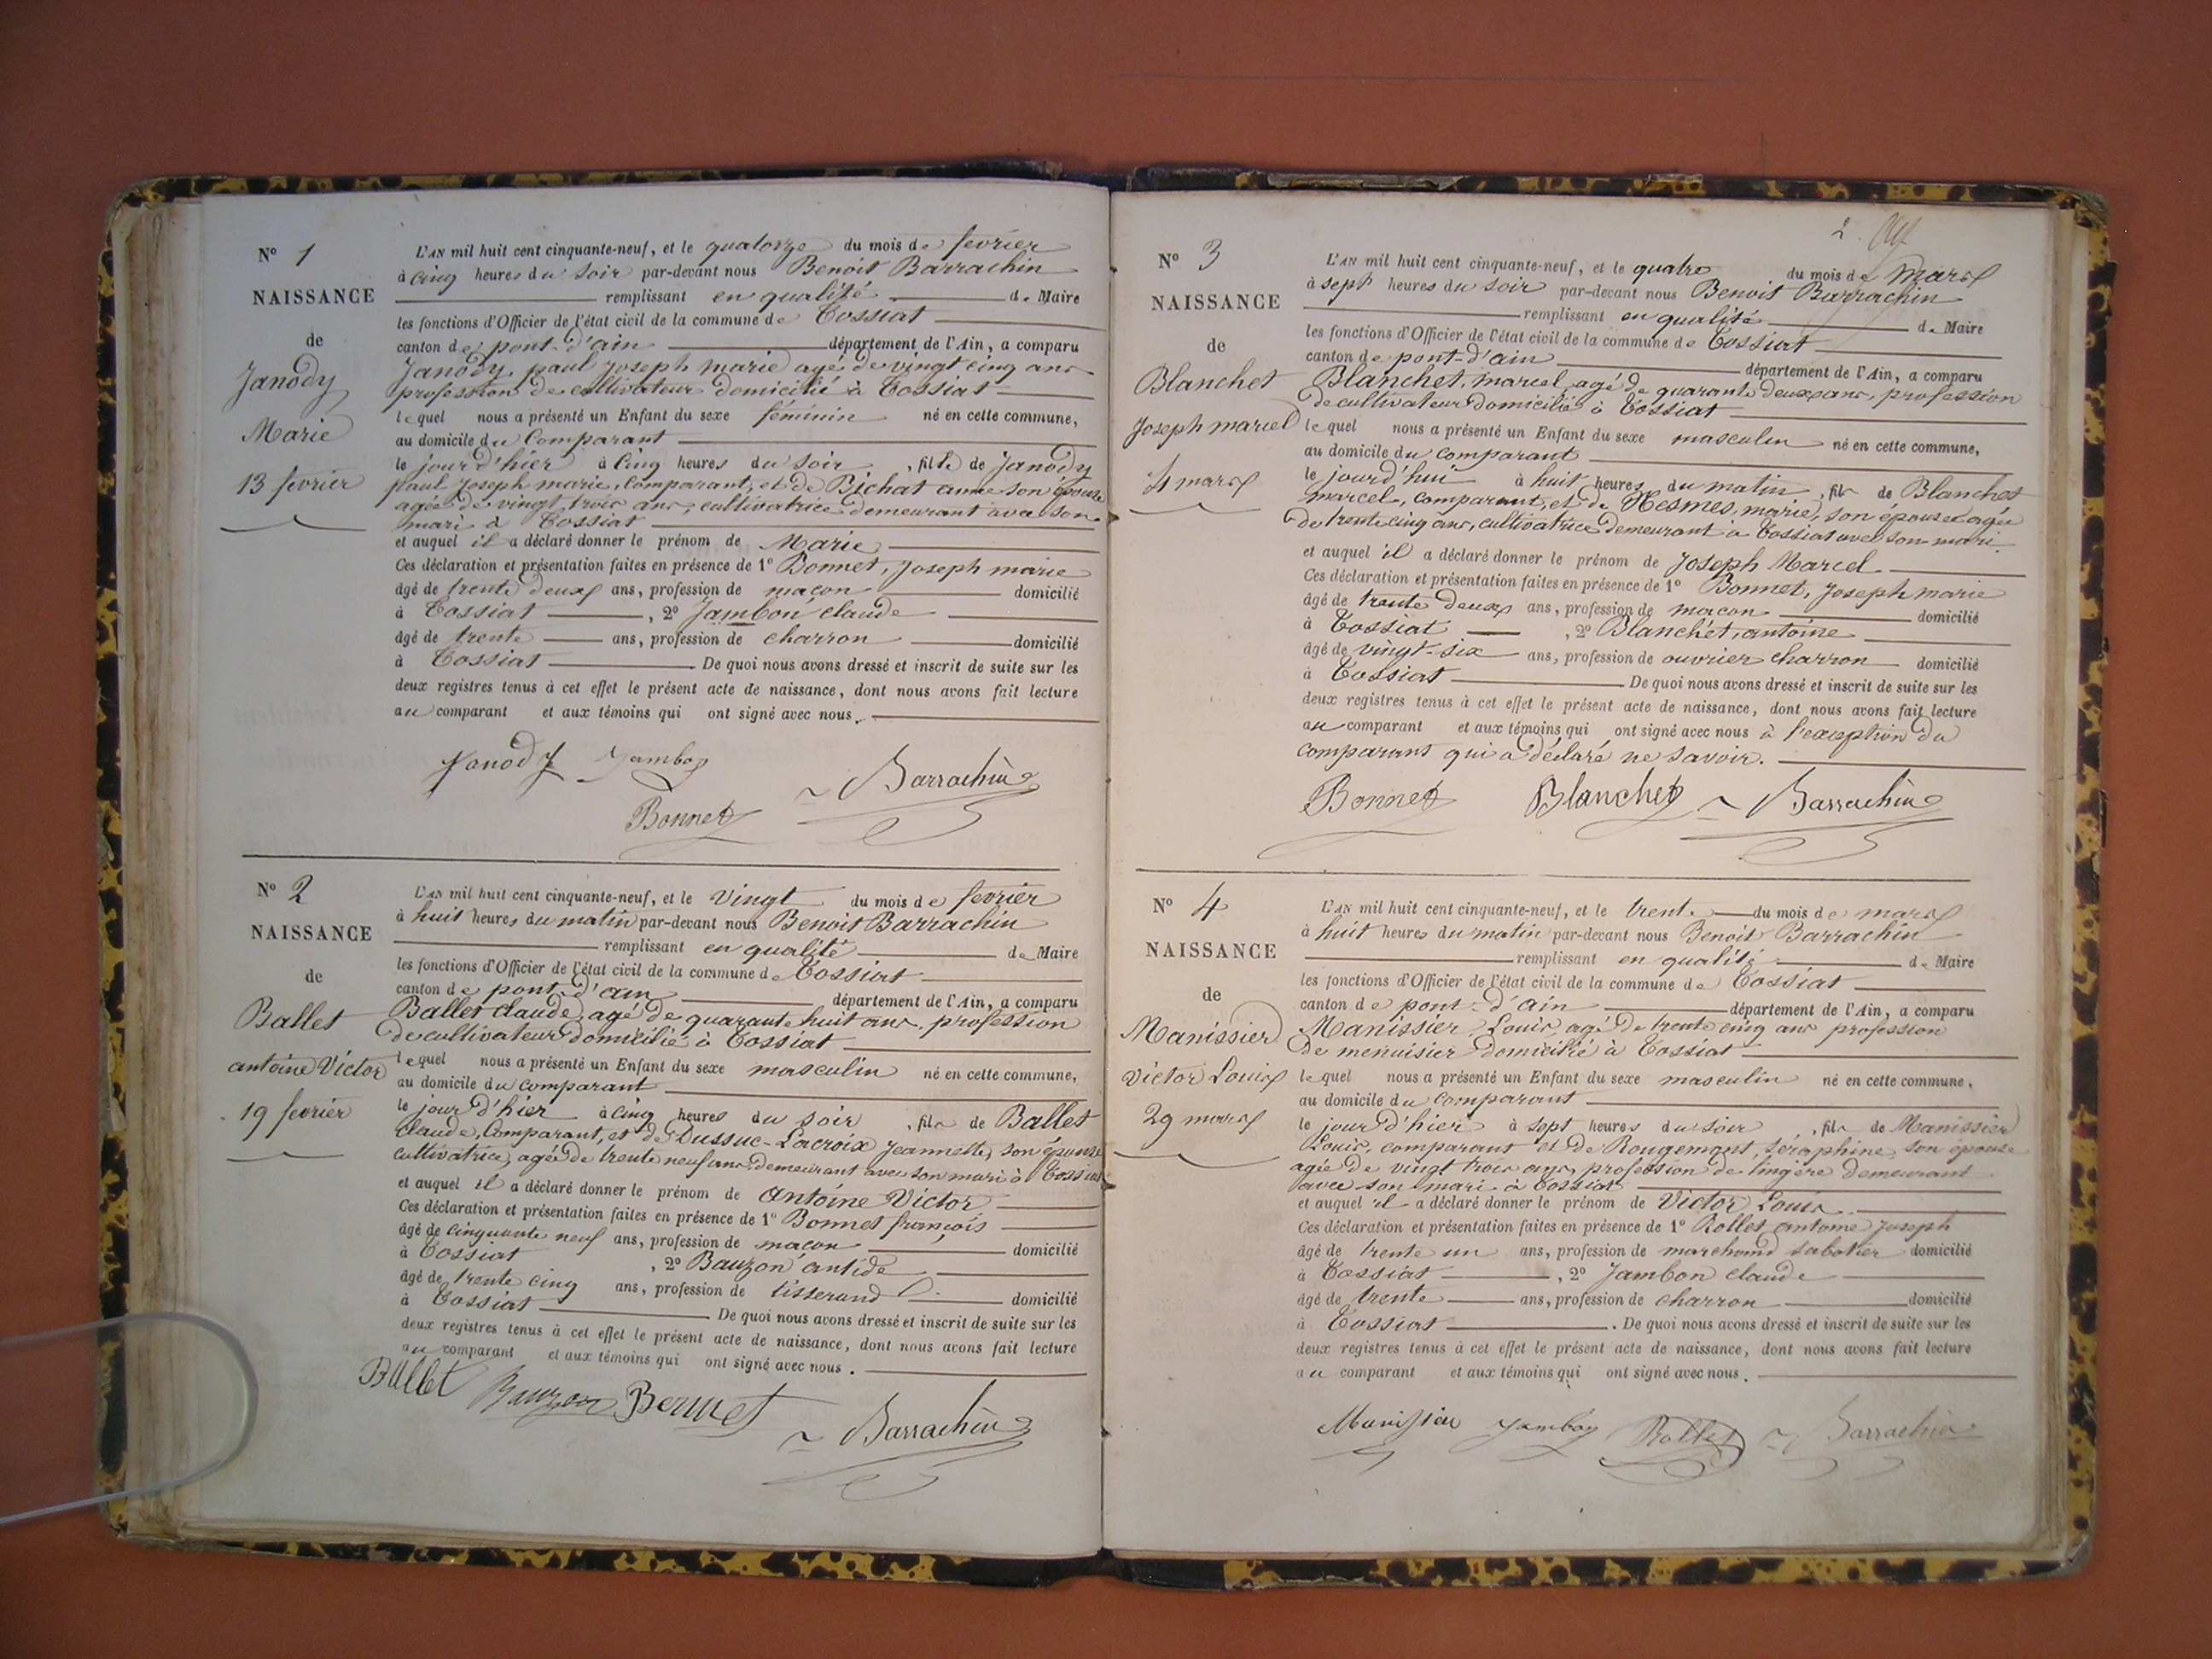 Nº 1
NAISSANCE
de
Janody
Marie
13 fevrier
L'AN mil huit cent cinquante-neuf, et le quatorze du mois de fevrier
à cinq heures du soir par-devant nous Benoit Barrachin
remplissant en qualité de Maire
les fonctions d'Officier de l'état civil de la commune de Tossiat
canton de pont-d'ain département de l'Ain, a comparu
Janody, paul joseph marie agé de vingt cinq ans
profession de cultivateur domicilié à Tossiat
lequel nous a présenté un Enfant du sexe féminin né en cette commune,
au domicile du Comparant
le jour d'hier à cinq heures du soir, fille de Janody
paul joseph marie, comparant, et de Bichat anne son épouse
agée de vingt trois ans, cultivatrice demeurant avec son
mari à Tossiat
et auquel il a déclaré donner le prénom de Marie
Ces déclaration et présentation faites en présence de 1º Bonnet, joseph marie
âgé de trente deux ans, profession de maçon domicilié
à Tossiat, 2º Jambon claude
âgé de trente ans, profession de charron domicilié
à Tossiat De quoi nous avons dressé et inscrit de suite sur les
deux registres tenus à cet effet le présent acte de naissance, dont nous avons fait lecture
au comparant et aux témoins qui ont signé avec nous.
Janody Jambon
Bonnet Barrachin
Nº 2
NAISSANCE
de
Ballet
antoine Victor
19 fevrier
L'AN mil huit cent cinquante-neuf, et le vingt du mois de fevrier
à huit heures du matin par-devant nous Benoit Barrachin
remplissant en qualité de Maire
les fonctions d'Officier de l'état civil de la commune de Tossiat
canton de pont-d'ain département de l'Ain, a comparu
Ballet claude, agé de quarante huit ans, profession
de cultivateur domicilié à Tossiat
lequel nous a présenté un Enfant du sexe masculin né en cette commune,
au domicile du comparant
le jour d'hier à cinq heures du soir, fils de Ballet
claude, Comparant, et de Dussuc-Lacroix Jeannette, son épouse
cultivatrice, agée de trente neuf ans, demeurant avec son mari à Tossiat
et auquel il a déclaré donner le prénom de antoine Victor
Ces déclaration et présentation faites en présence de 1º Bonnet françois
âgé de cinquante neuf ans, profession de maçon domicilié
à Tossiat, 2º Bauzon antide
âgé de trente cinq ans, profession de tisserand domicilié
à Tossiat De quoi nous avons dressé et inscrit de suite sur les
deux registres tenus à cet effet le présent acte de naissance, dont nous avons fait lecture
au comparant et aux témoins qui ont signé avec nous.
Ballet Bauzon Bonnet
Barrachin
2.
Nº 3
NAISSANCE
de
Blanchet
Joseph marcel
4 mars
L'AN mil huit cent cinquante-neuf, et le quatre du mois de mars
à sept heures du soir par-devant nous Benoit Barrachin
remplissant en qualité de Maire
les fonctions d'Officier de l'état civil de la commune de Tossiat
canton de pont-d'ain département de l'Ain, a comparu
Blanchet, marcel, agé de quarante deux ans, profession
de cultivateur domicilié à Tossiat
lequel nous a présenté un Enfant du sexe masculin né en cette commune,
au domicile du comparant
le jourd'hui à huit heures du matin, fils de Blanchet
marcel, comparant, et de Mesmes, marie, son épouse agée
de trente cinq ans, cultivatrice demeurant à Tossiat avec son mari.
et auquel il a déclaré donner le prénom de Joseph Marcel
Ces déclaration et présentation faites en présence de 1º Bonnet, Joseph marie
âgé de trente deux ans, profession de maçon domicilié
à Tossiat, 2º Blanchet, antoine
âgé de vingt-six ans, profession de ouvrier charron domicilié
à Tossiat De quoi nous avons dressé et inscrit de suite sur les
deux registres tenus à cet effet le présent acte de naissance, dont nous avons fait lecture
au comparant et aux témoins qui ont signé avec nous à l'exception du
comparant qui a déclaré ne savoir.
Bonnet Blanchet Barrachin
Nº 4
NAISSANCE
de
Manissier
Victor Louis
29 mars
L'AN mil huit cent cinquante-neuf, et le trente du mois de mars
à huit heures du matin par-devant nous Benoit Barrachin
remplissant en qualité de Maire
les fonctions d'Officier de l'état civil de la commune de Tossiat
canton de pont-d'ain département de l'Ain, a comparu
Manissier, Louis, agé de trente cinq ans profession
de menuisier domicilié à Tossiat
lequel nous a présenté un Enfant du sexe masculin né en cette commune,
au domicile du comparant
le jour d'hier à sept heures du soir, fils de Manissier
Louis, comparant et de Rougemont, séraphine son épouse
agée de vingt trois ans, profession de lingère demeurant
avec son mari à Tossiat
et auquel il a déclaré donner le prénom de Victor Louis
Ces déclaration et présentation faites en présence de 1º Rollet antoine Joseph
âgé de trente un ans, profession de marchand sabotier domicilié
à Tossiat, 2º Jambon claude
âgé de trente ans, profession de charron domicilié
à Tossiat. De quoi nous avons dressé et inscrit de suite sur les
deux registres tenus à cet effet le présent acte de naissance, dont nous avons fait lecture
au comparant et aux témoins qui ont signé avec nous.
Manissier Jambon Rollet Barrachin